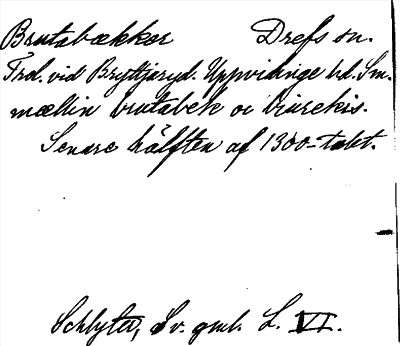 Brutabækker Drefs sn.
Trol. vid Bryttjeryd. Uppvidinge hd. Sm.
mællin brutabek oc biurekis.
Senare hälften af 1300-talet.
Schlyter, Sv. gml. L. VI.